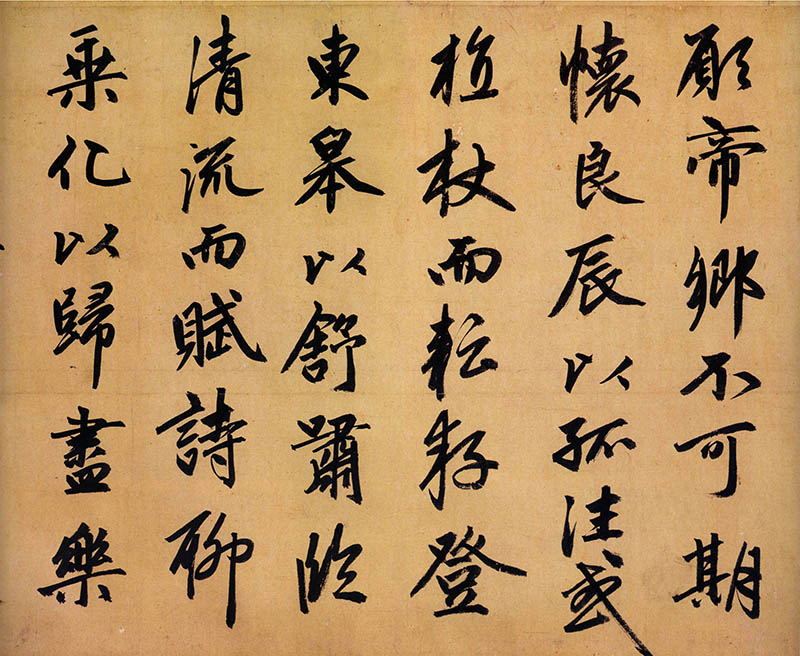 願帝鄉不可期
懷良辰以孤往或
植杖而耘耔登
東皋以舒嘯臨
清流而賦詩聊
乘化以歸盡樂